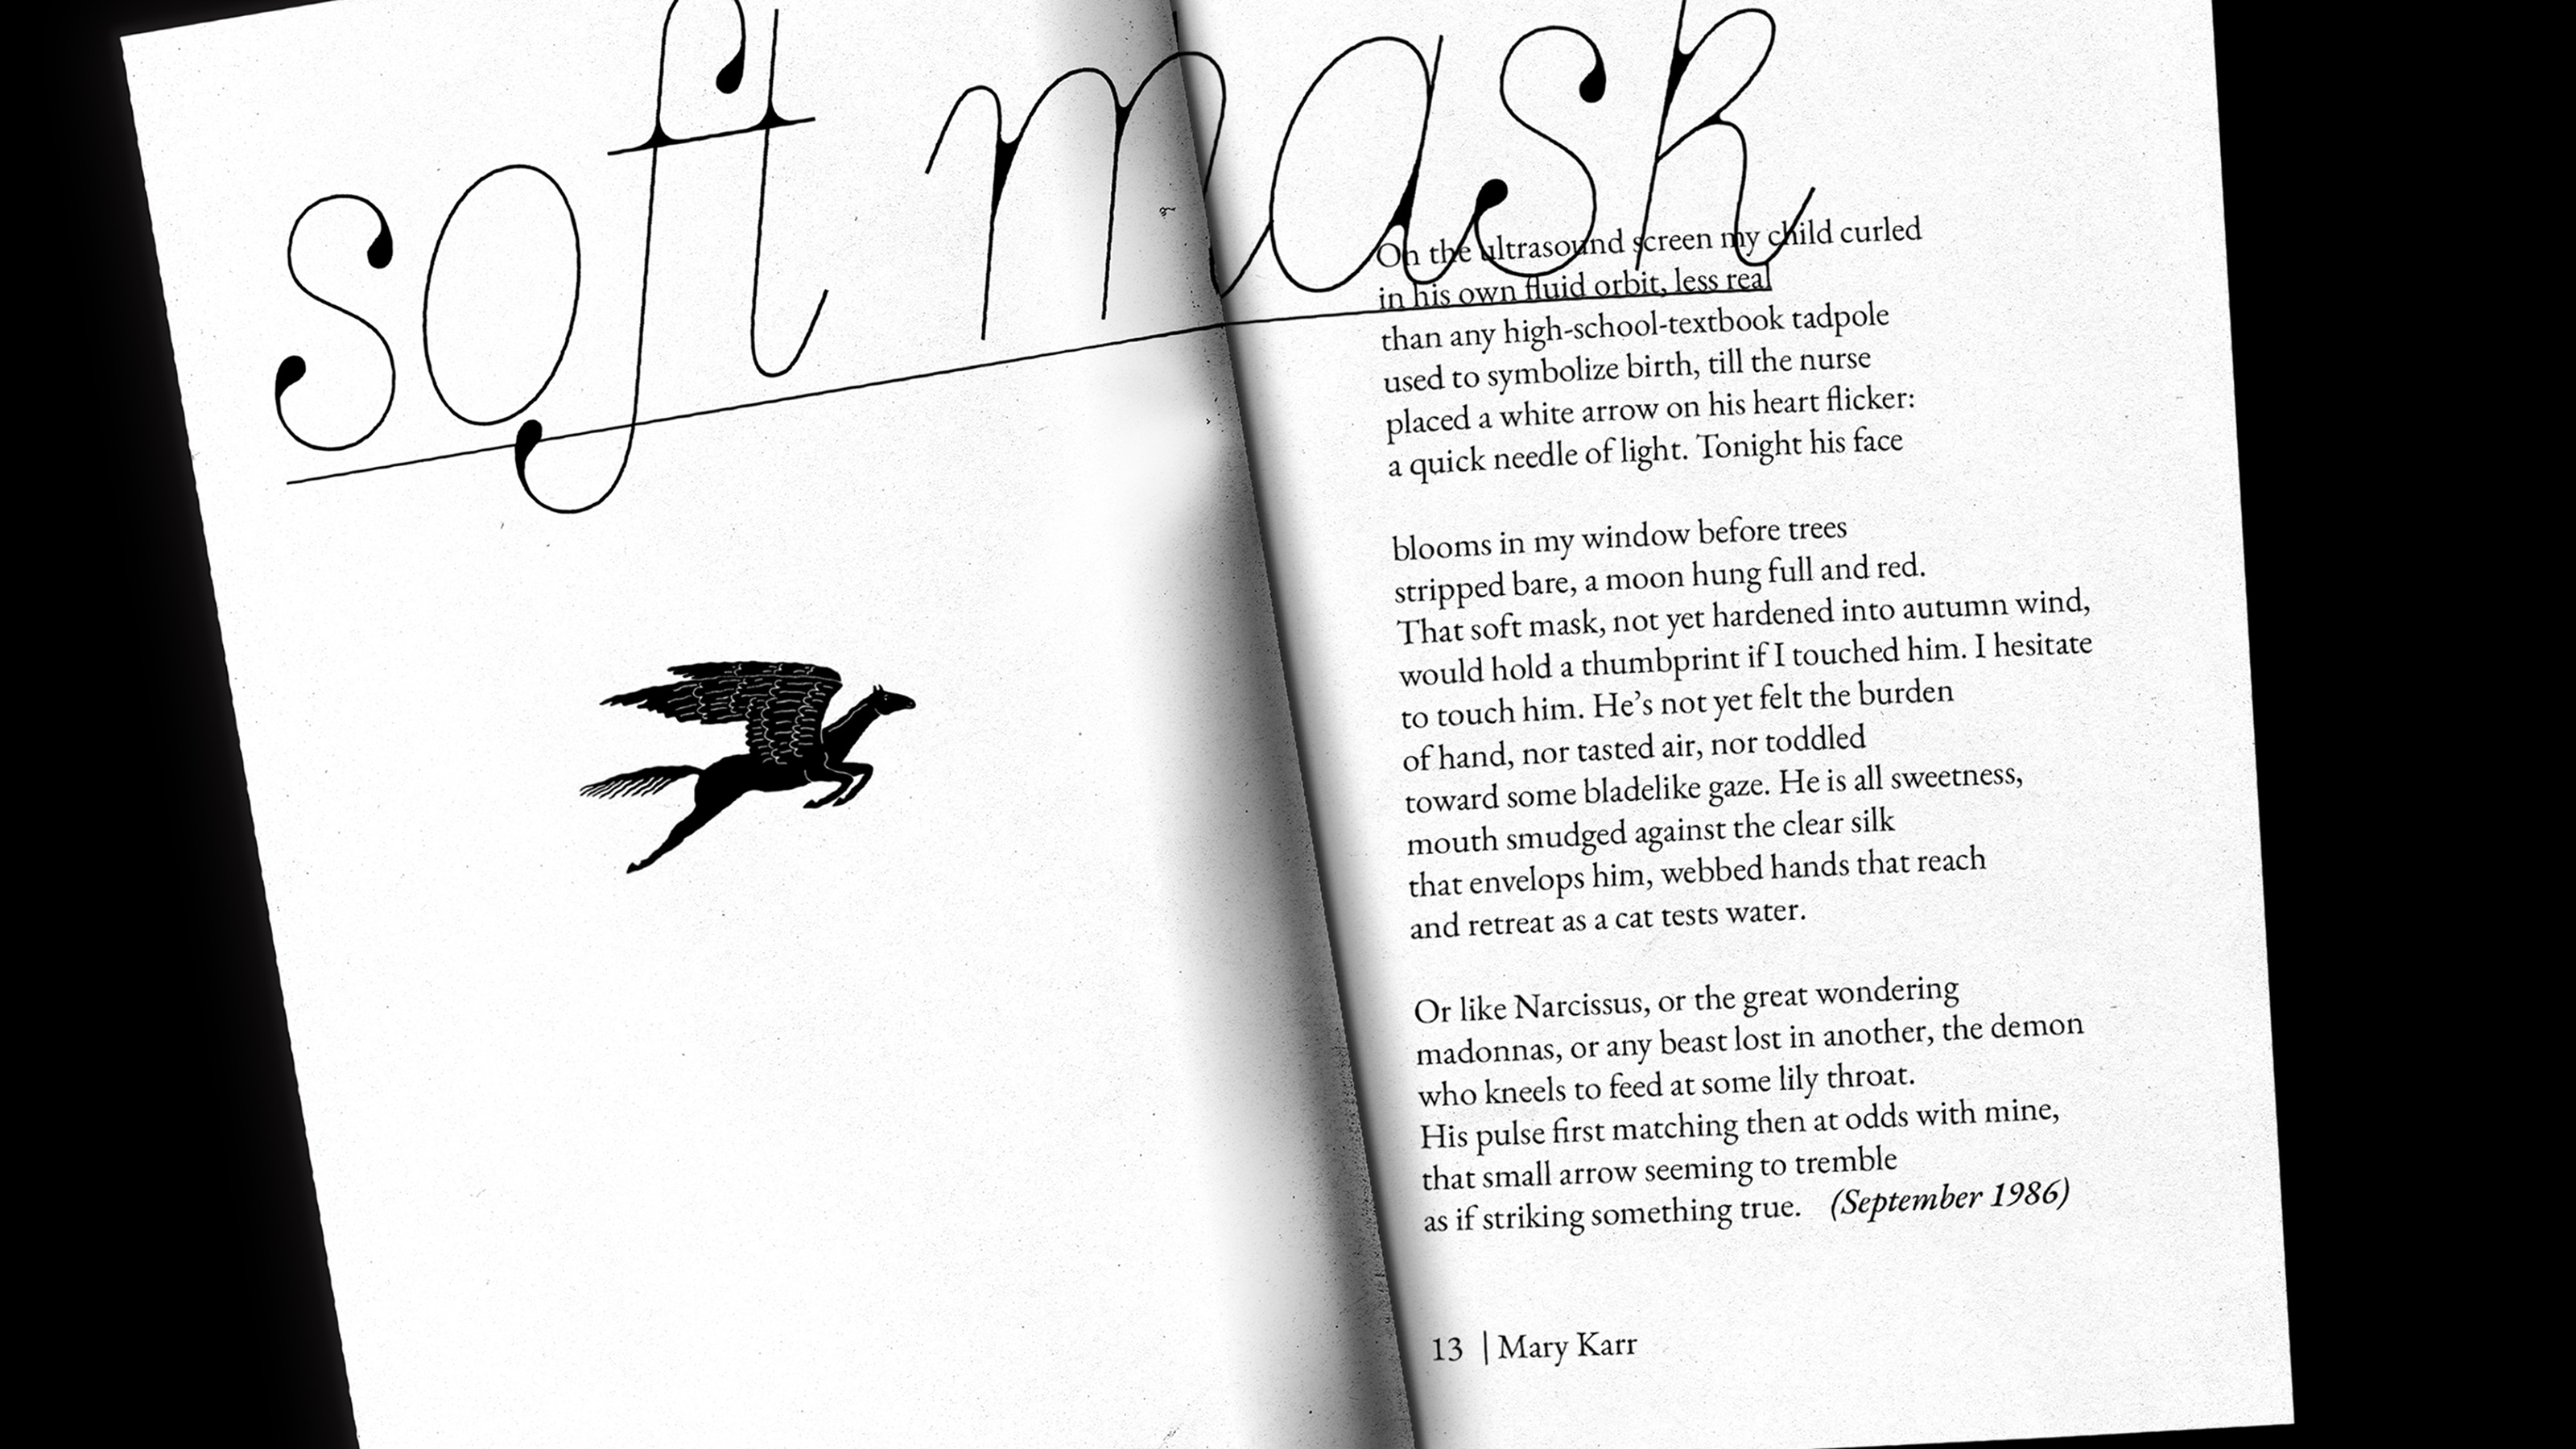 soft mask
On the ultrasound screen my child curled
in his own fluid orbit, less real
than any high-school-textbook tadpole
used to symbolize birth, till the nurse
placed a white arrow on his heart flicker:
a quick needle of light. Tonight his face
blooms in my window before trees
stripped bare, a moon hung full and red.
That soft mask, not yet hardened into autumn wind,
would hold a thumbprint if I touched him. I hesitate
to touch him. He’s not yet felt the burden
of hand, nor tasted air, nor toddled
toward some bladelike gaze. He is all sweetness,
mouth smudged against the clear silk
that envelops him, webbed hands that reach
and retreat as a cat tests water.
Or like Narcissus, or the great wondering
madonnas, or any beast lost in another, the demon
who kneels to feed at some lily throat.
His pulse first matching then at odds with mine,
that small arrow seeming to tremble
as if striking something true. (September 1986)
13 | Mary Karr